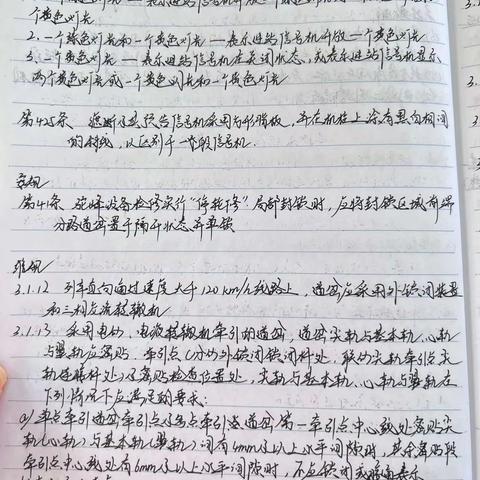 个黄色灯光
2.一个绿色灯光和一个黄色灯光——表示进站信号机开放一个黄色灯光
3.一个黄色灯光——表示进站信号机在关闭状态,或表示进站信号机显示
两个黄色灯光或一个黄色闪光和一个黄色灯光
第425条 遮断及其预告信号机采用方形背板,并在机柱上涂有黑白相间
的斜线,以区别于一般信号机.
安规
第41条 道岔设备检修实行“停轮修”局部封锁时,应将封锁区域
分路道岔置于隔开状态并单锁
维规
3.1.12 列车直向通过速度大于120km/h线路上,道岔应采用外锁闭装置
和三相交流转辙机
3.1.13 采用电动、电液转辙机牵引的道岔,道岔尖轨与基本轨、心轨
与翼轨应密贴.牵引点(分动外锁闭锁闭杆处、联动尖轨牵引点尖
轨连接杆处)及密贴检查位置处,尖轨与基本轨、心轨与翼轨在
下列情况下应满足的要求:
a)单点牵引道岔牵引点及多点牵引道岔第一牵引点中心线处密贴尖
轨(心轨)与基本轨(翼轨)间有4mm及以上水平间隙时,其余密贴段
牵引点中心线处有6mm及以上水平间隙时,不应锁闭或接通表示